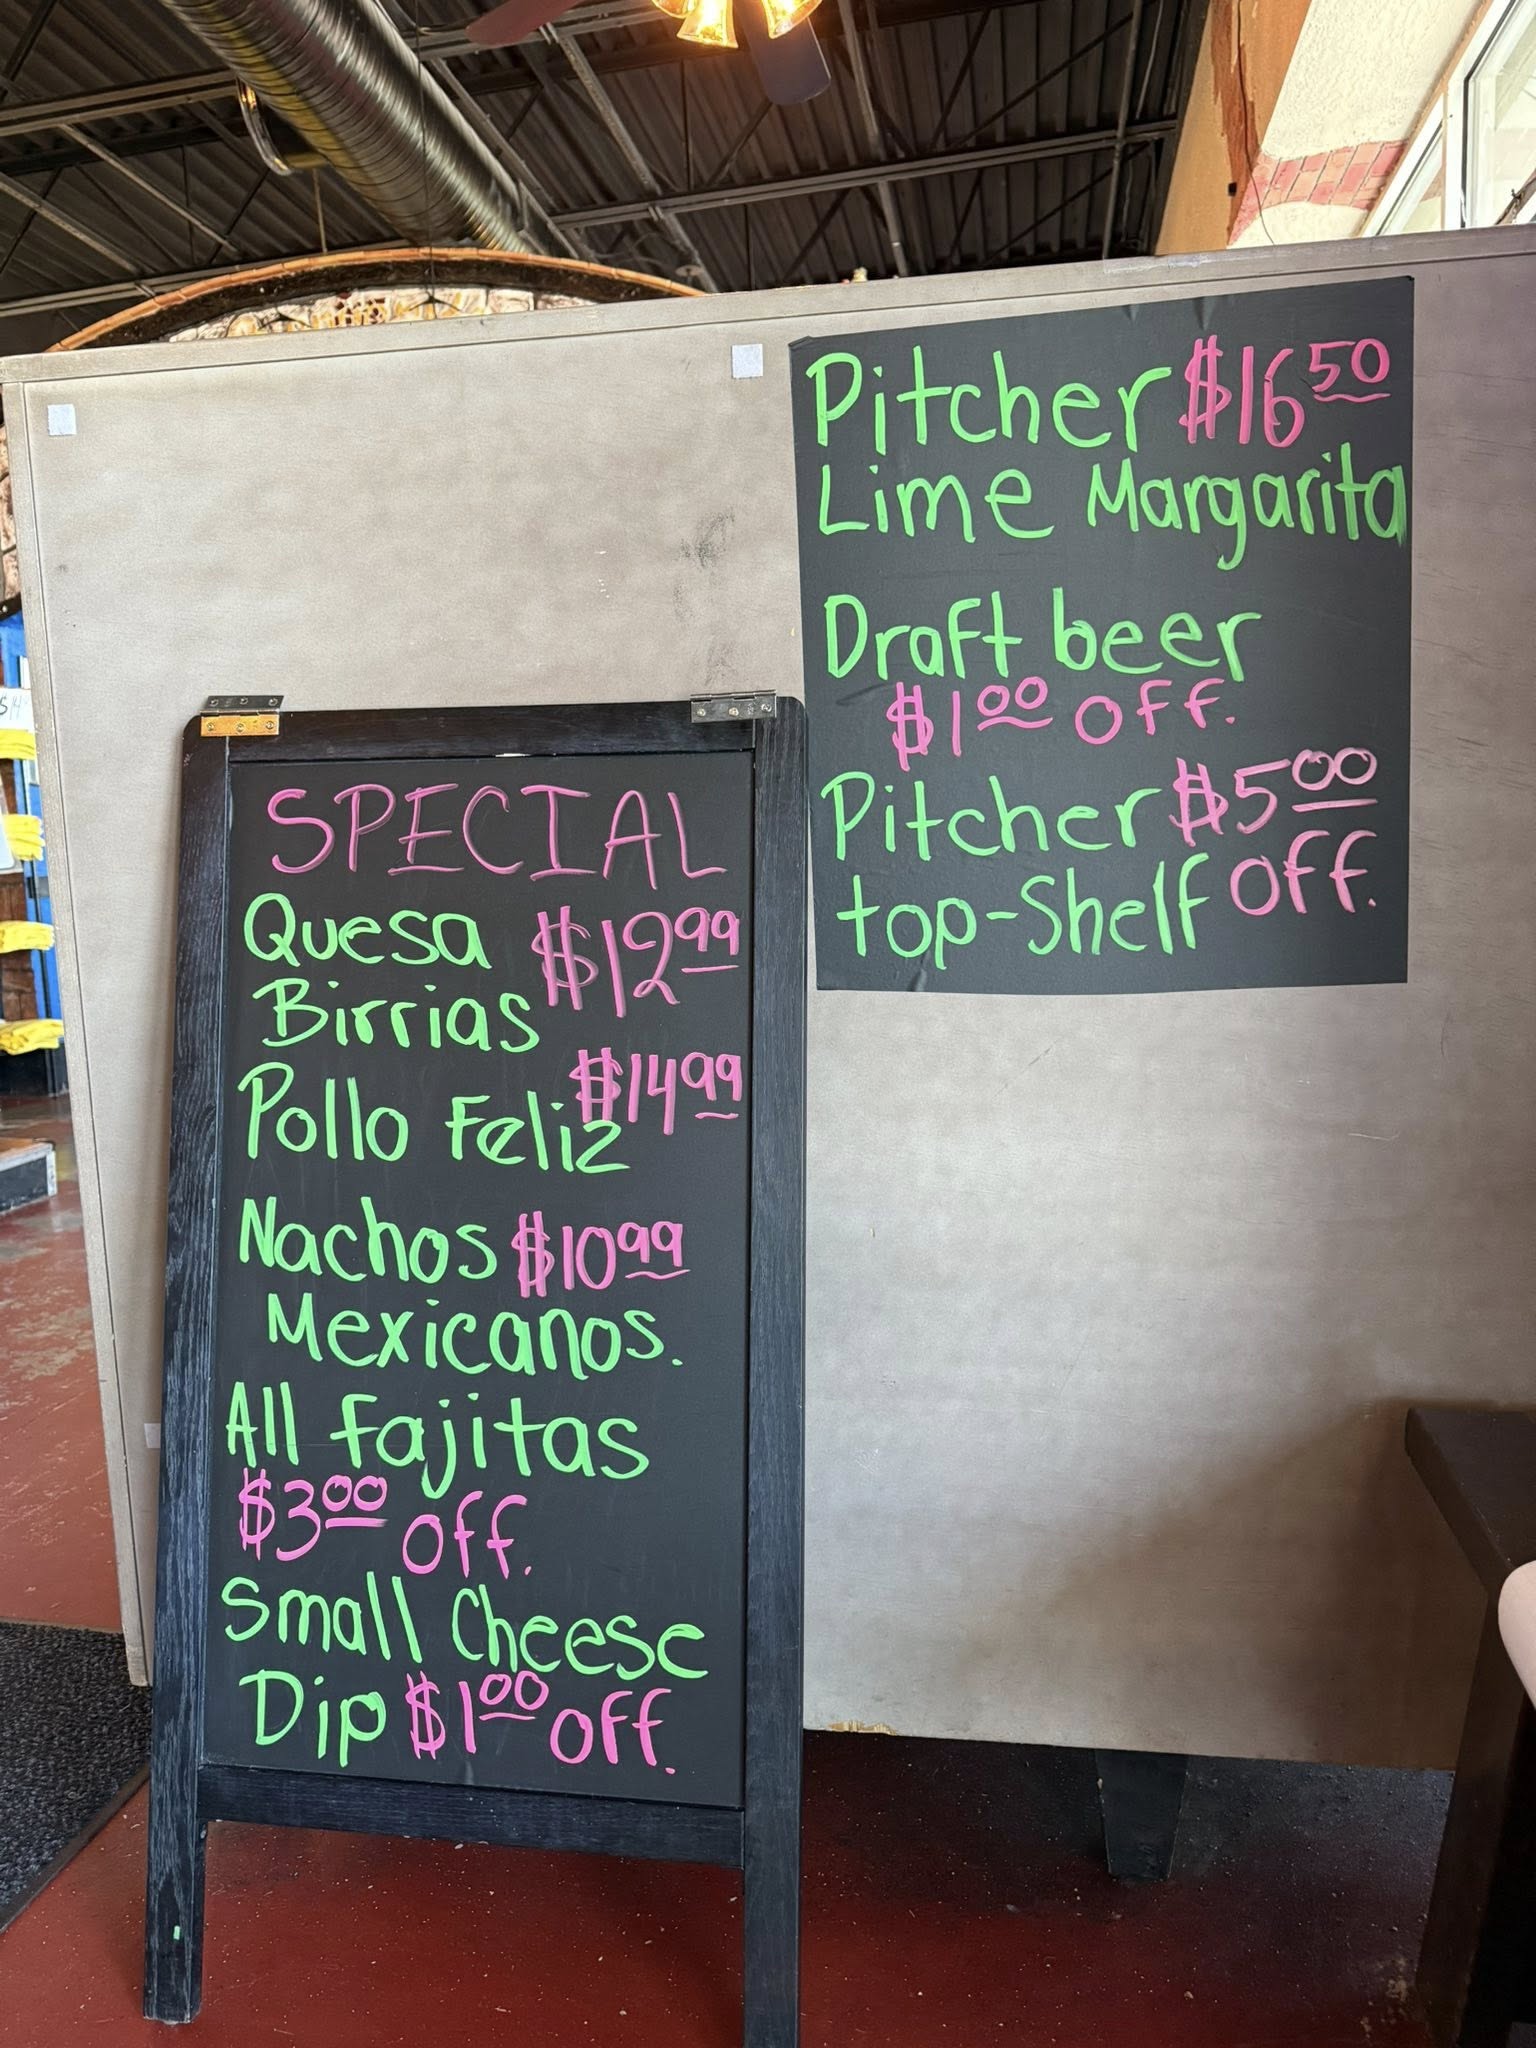 SPECIAL
Quesa $12.99
Birrias
Pollo Feliz $14.99
Nachos $10.99
Mexicanos.
All Fajitas
$3.00 off.
Small Cheese
Dip $1.00 off.
Pitcher $16.50
Lime Margarita
Draft beer
$1.00 off.
Pitcher $5.00
top-Shelf off.